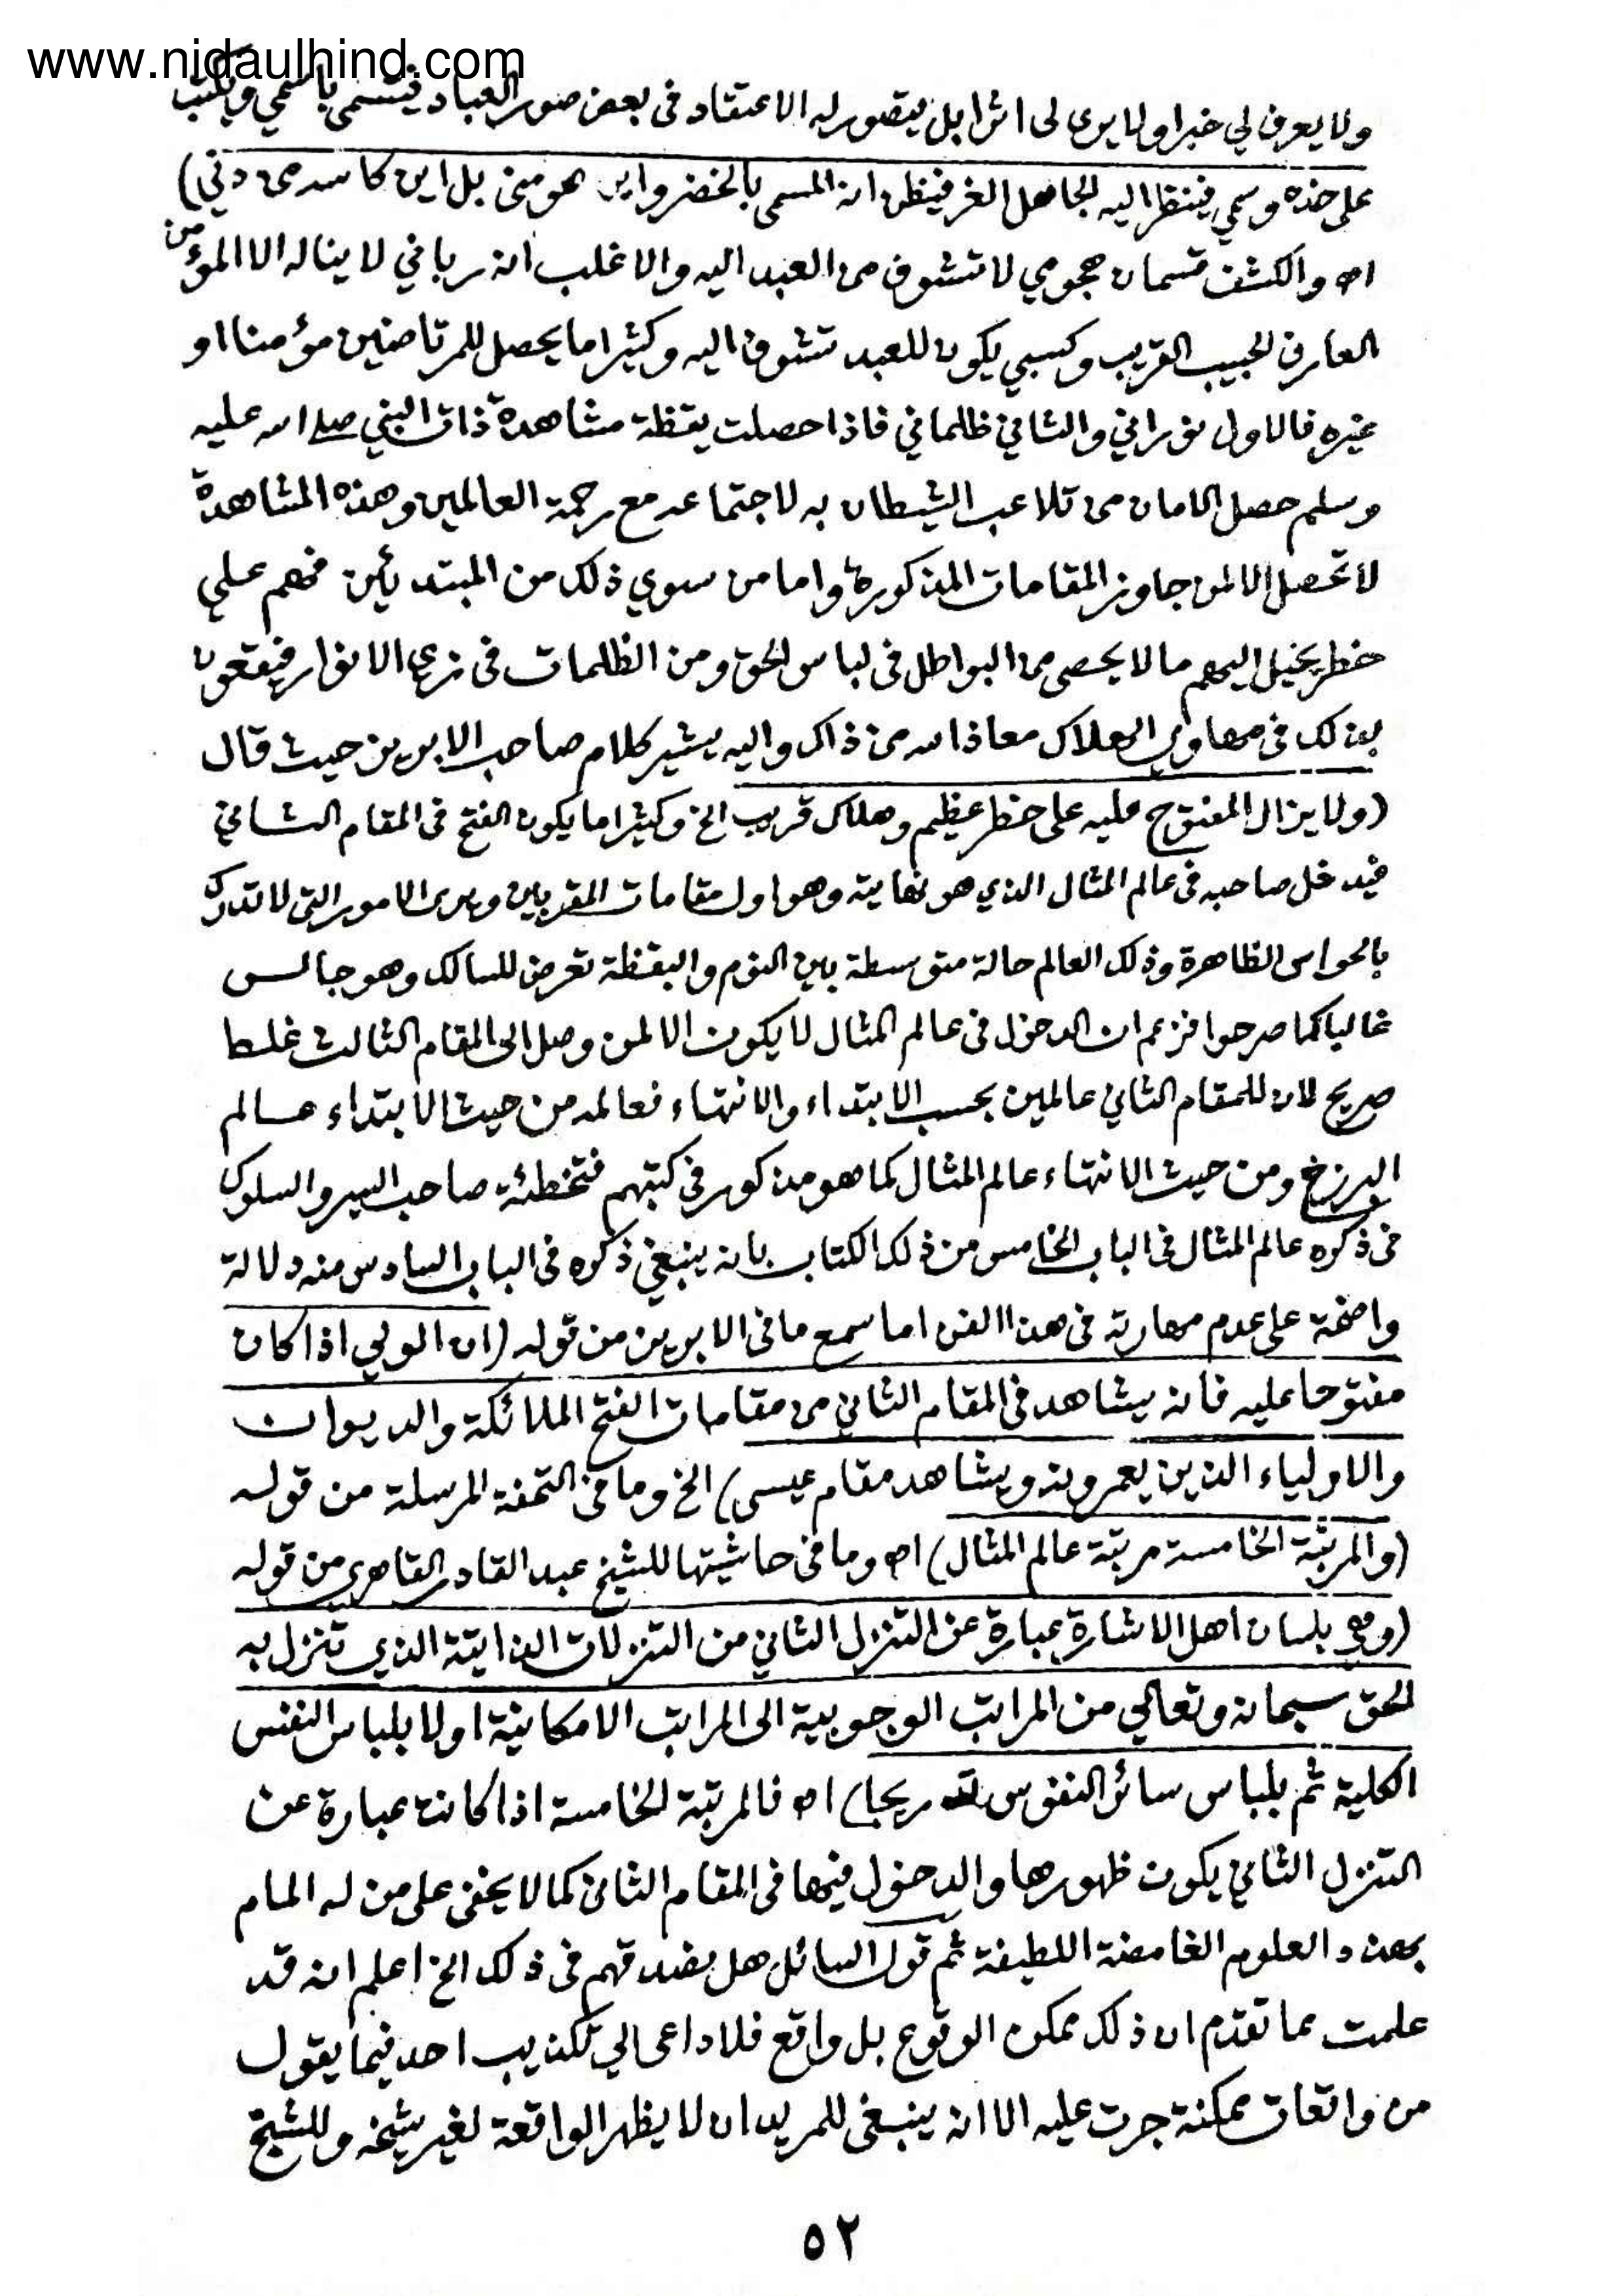 www.nidaulhind.com
ولا يعرف لي خبرا ولا يرى لى اثرا بل يتصور له الاعتقاد فى بعض صور العباد فيتسمى باسمي ويكتب
على خده وسمي فينظر اليه الجاهل الغر فيظن انه المسمى بالخضر واين هو منى بل اين كاسه من دني)
اه والكشف قسمان هجومي لا تشوف من العبد اليه والاغلب انه رباني لا يناله الا المؤمن
العارف الحبيب القريب وكسبي يكون للعبد تشوف اليه وكثيرا ما يحصل للمرتاضين مؤمنا او
غيره فالاول نوراني والثاني ظلماني فاذا حصلت يقظة مشاهدة ذات النبي صلى الله عليه
وسلم حصل الامان من تلاعب الشيطان به لاجتماعه مع رحمة العالمين وهذه المشاهدة
لا تحصل الا لمن جاوز المقامات المذكورة واما من سوي ذلك من المبتدئين فهم علي
خطر يخيل اليهم ما لا يحصى من البواطل فى لباس الحق ومن الظلمات فى زي الانوار فيقعون
بذلك فى مهاوي الهلاك معاذا لله من ذاك واليه يشير كلام صاحب الابريز حيث قال
(ولا يزال المفتوح عليه على خطر عظيم وهلاك قريب الخ وكثيرا ما يكون الفتح فى المقام الثاني
فيدخل صاحبه فى عالم المثال الذي هو نهايته وهو اول مقامات المقربين ويرى الامور التى لا تدرك
بالحواس الظاهرة وذلك العالم حالة متوسطة بين النوم واليقظة تعرض للسالك وهو جالس
غالبا كما صرحوا فزعم ان الدخول فى عالم المثال لا يكون الا لمن وصل الى المقام الثالث غلط
صريح لان للمقام الثاني عالمين بحسب الابتداء والانتهاء فعالمه من حيث الابتداء عالم
البرزخ ومن حيث الانتهاء عالم المثال كما هو مذكور في كتبهم فتخطئة صاحب السير والسلوك
فى ذكره عالم المثال فى الباب الخامس من ذلك الكتاب بانه ينبغي ذكره فى الباب السادس منه دلالة
واضحة على عدم مهارته فى هذا الفن اما سمع ما فى الابريز من قوله (ان الولي اذا كان
مفتوحا عليه فانه يشاهد فى المقام الثاني من مقامات الفتح الملائكة والديوان
والاولياء الذين يعمرونه ويشاهد مقام عيسى) الخ وما فى التحفة المرسلة من قوله
(والمرتبة الخامسة مرتبة عالم المثال) اه وما فى حاشيتها للشيخ عبد القادر من قوله
(وهي بلسان اهل الاشارة عبارة عن التنزل الثاني من التنزلات الذاتية الذي تنزل به
الحق سبحانه وتعالي من المراتب الوجوبية الى المراتب الامكانية اولا بلباس النفس
الكلية ثم بلباس سائر النفوس تدريجا) اه فالمرتبة الخامسة اذا كانت عبارة عن
التنزل الثاني يكون ظهورها والدخول فيها فى المقام الثانى كما لا يخفى على من له المام
بهذه العلوم الغامضة اللطيفة ثم قول السائل هل نصدقهم فى ذلك الخ اعلم انه قد
علمت مما تقدم ان ذلك ممكن الوقوع بل واقع فلا داعى الي تكذيب احد فيما يقول
من واقعات ممكنة جرت عليه الا انه ينبغى للمريد ان لا يظهر الواقعة لغير شيخه وللشيخ
٥٢